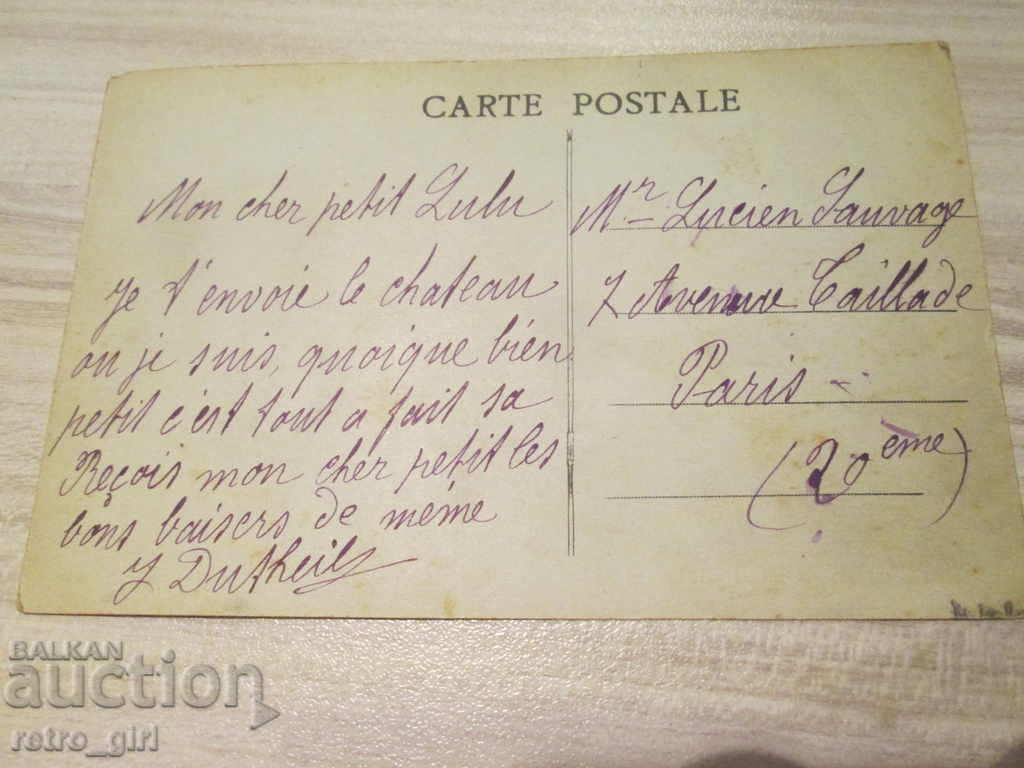 CARTE POSTALE
Mon cher petit Lulu
Je t'envoie le chateau
ou je suis, quoique bien
petit c'est tout a fait sa
Reçois mon cher petit les
bons baisers de mémé
Y Dutheil
Mr Lucien Sauvage
7 Avenue Taillade
Paris
(20ème)
BALKAN
auction
retro_girl